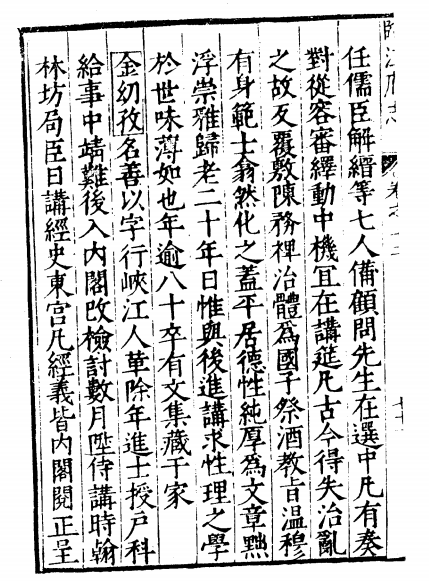 臨江府志
卷之十二
任儒臣解縉等七人備顧問先生在選中凡有奏
對從容審繹動中機冝在講筵凡古今得失治亂
之故反覆敷陳務禆治體爲國子祭酒教旨温穆
有身範士翕然化之蓋平居德性純厚爲文章黜
浮崇雅歸老二十年日惟與後進講求性理之學
於世味薄如也年逾八十卒有文集藏于家
金幼孜名善以字行峽江人革除年進士授戸科
給事中靖難後入內閣改檢討數月陞侍講時翰
林坊局臣日講經史東宫凡經義皆內閣閱正呈